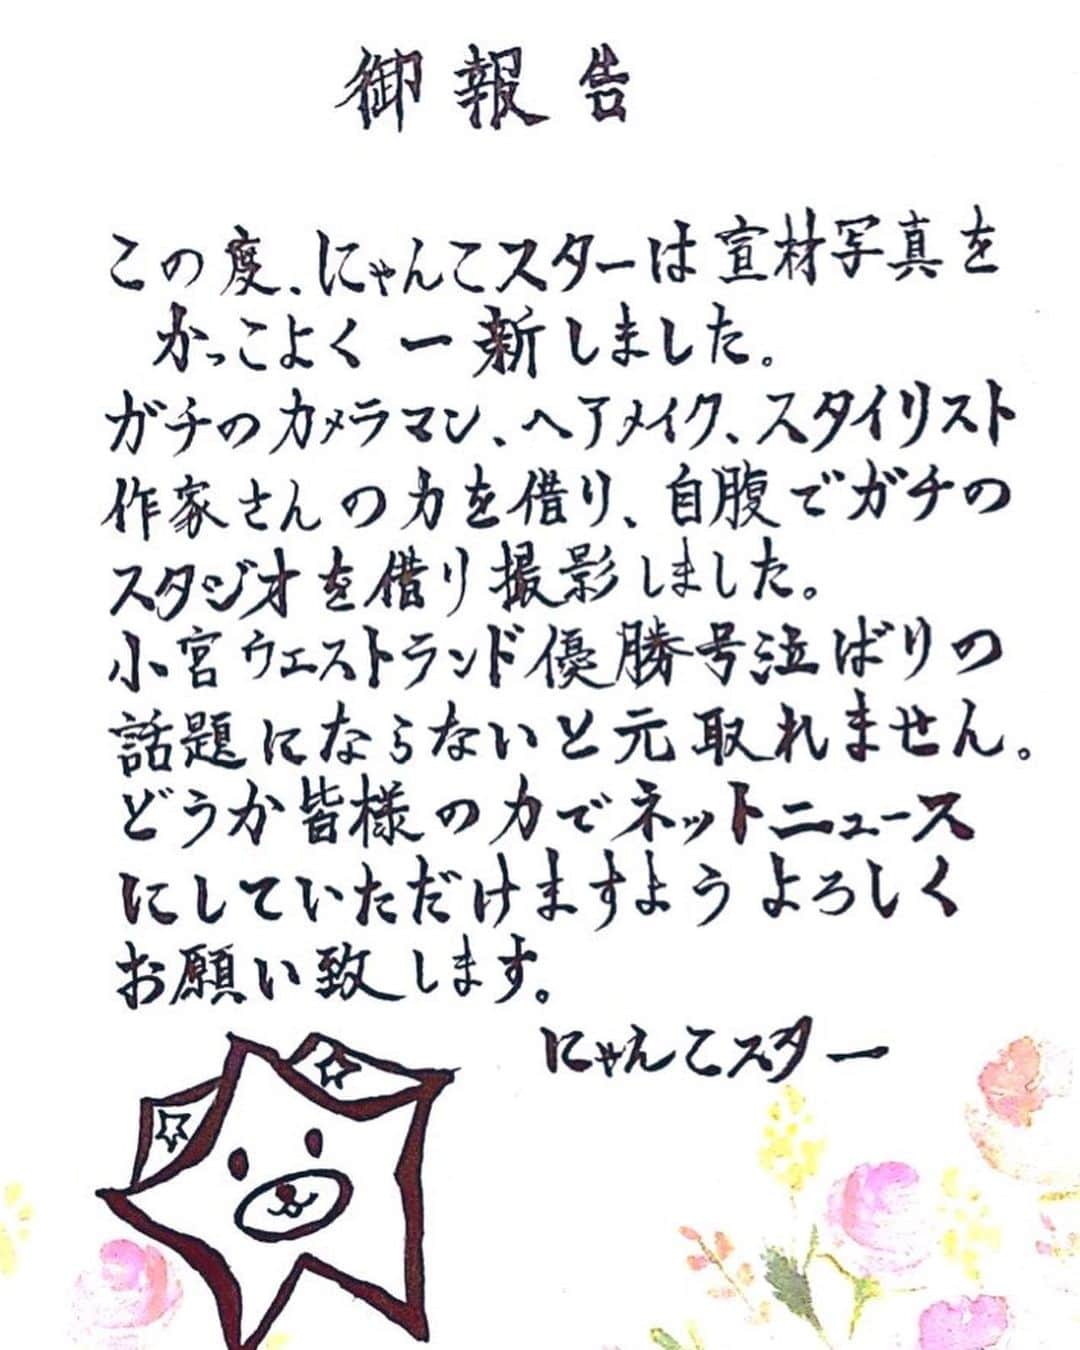 御報告
この度、にゃんこスターは宣材写真を
かっこよく一新しました。
ガチのカメラマン、ヘアメイク、スタイリスト
作家さんの力を借り、自腹でガチの
スタジオを借り撮影しました。
小宮ウエストランド優勝号泣ばりの
話題にならないと元取れません。
どうか皆様の力でネットニュース
にしていただけますようよろしく
お願い致します。
にゃんこスター